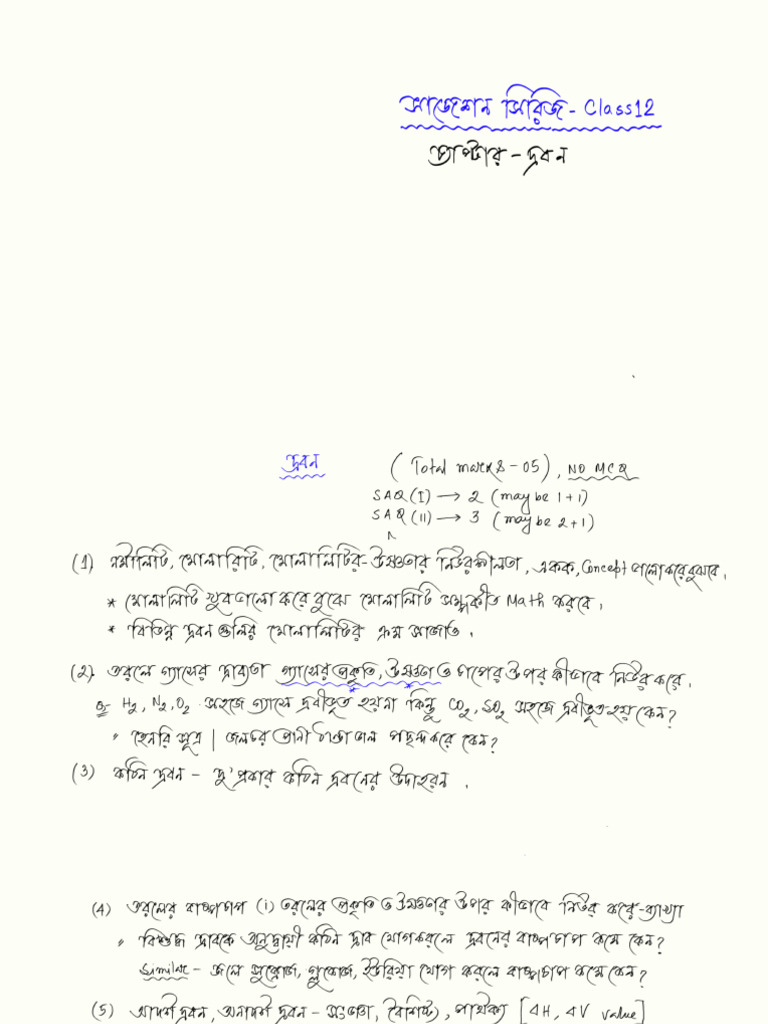 সাজেশন সিরিজ - Class 12
চ্যাপ্টার - দ্রবন
দ্রবন
(Total marks - 05), NO MCQ
SAQ(I) → 2 (may be 1+1)
SAQ(II) → 3 (may be 2+1)
(1) নর্মালিটি, মোলারিটি, মোলালিটির - উষ্ণতার নির্ভরশীলতা, একক, Concept ভালো করে বুঝবে।
* মোলালিটি খুব ভালো করে বুঝে মোলালিটি সম্পর্কীত Math করবে।
* বিভিন্ন দ্রবন গুলির মোলালিটির ক্রম সাজাও।
(2) তরলে গ্যাসের দ্রাব্যতা গ্যাসের প্রকৃতি, উষ্ণতা ও চাপের উপর কীভাবে নির্ভর করে।
H2, N2, O2 সহজে গ্যাসে দ্রবীভূত হয়না কিন্তু CO2, SO2 সহজে দ্রবীভূত হয় কেন?
• হেনরি সূত্র | জলচর প্রানী ঠান্ডা জল পছন্দ করে কেন?
(3) কঠিন দ্রবন - দু'প্রকার কঠিন দ্রবনের উদাহরন।
(4) তরলের বাষ্পচাপ (i) তরলের প্রকৃতি ও উষ্ণতার উপর কীভাবে নির্ভর করে - ব্যাখ্যা
• বিশুদ্ধ দ্রাবকে অনুদ্বায়ী কঠিন দ্রাব যোগ করলে দ্রবনের বাষ্পচাপ কমে কেন?
Similar - জলে সুক্রোজ, গ্লুকোজ, ইউরিয়া যোগ করলে বাষ্পচাপ কমে কেন?
(5) আদর্শ দ্রবন, অনাদর্শ দ্রবন - সংজ্ঞা, বৈশিষ্ট্য, পার্থক্য [ΔH, ΔV value]